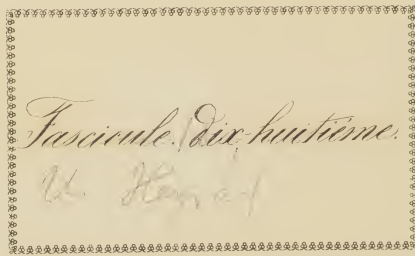 Fascicule. dix-huitième.